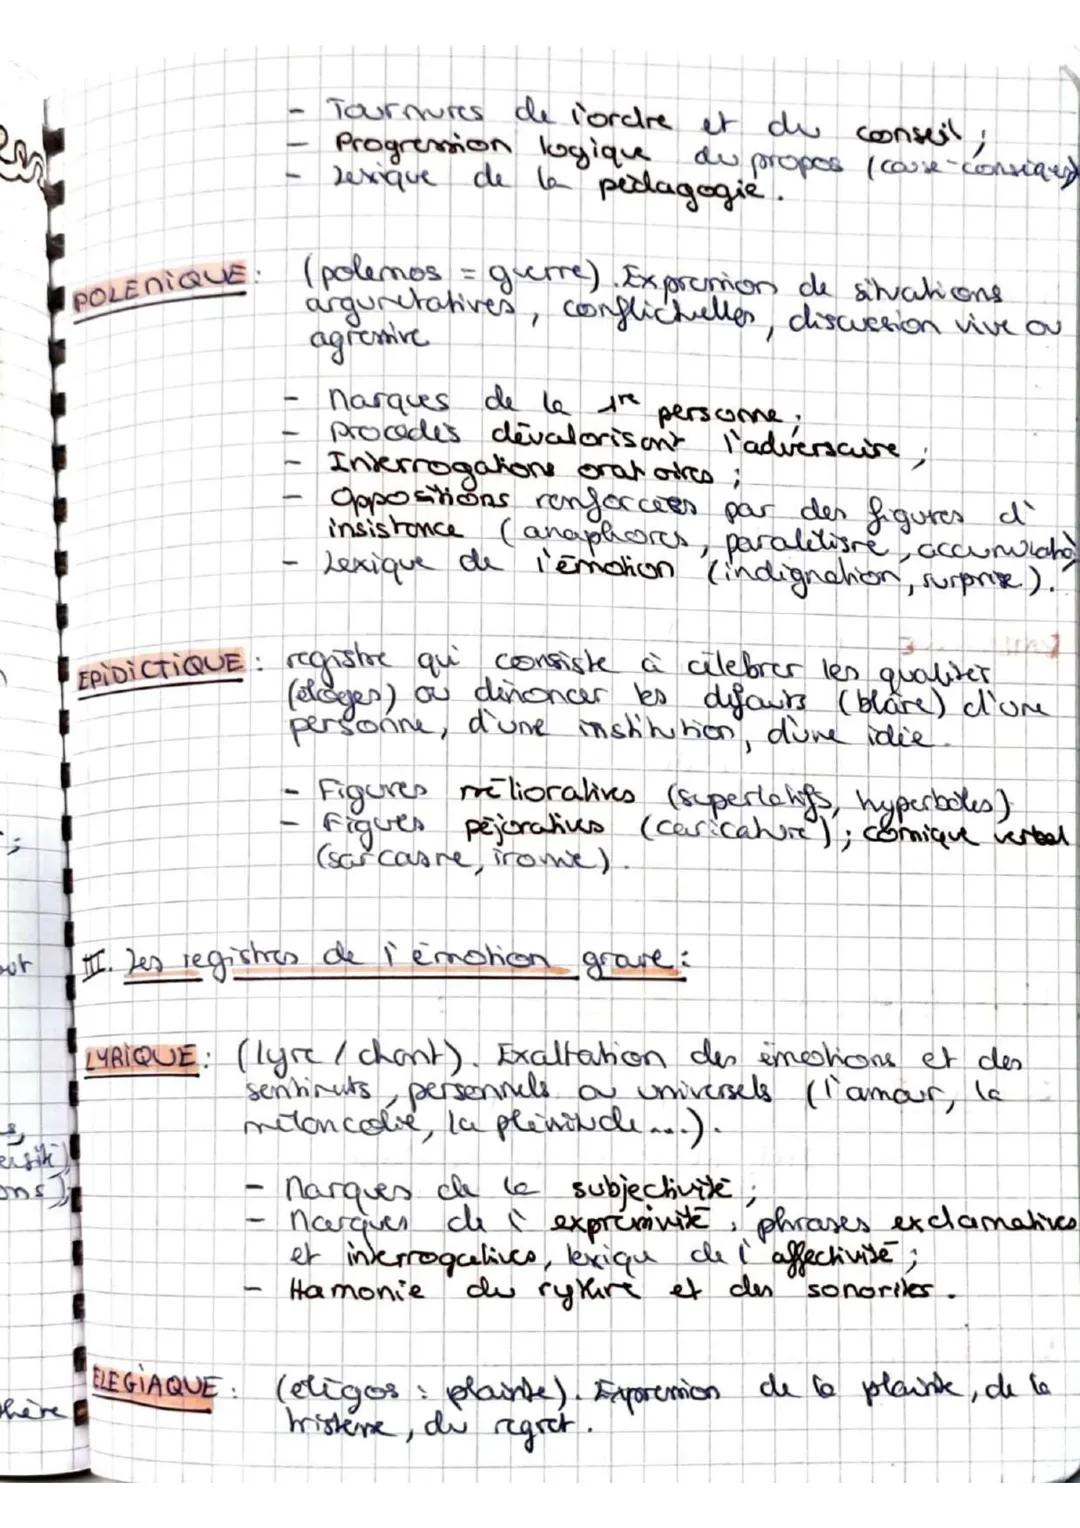 - Tournures de l'ordre et du conseil ;
- Progression logique du propos (cause-conséquence)
- Lexique de la pédagogie.
POLEMIQUE : (polemos = guerre). Expression de situations
argumentatives, conflictuelles, discussion vive ou
agressive
- Marques de la 1re personne ;
- Procédés dévalorisant l'adversaire ;
- Interrogations oratoires ;
- Oppositions renforcées par des figures d'
insistance (anaphores, parallélisme, accumulatio)
- Lexique de l'émotion (indignation, surprise).
EPiDiCTiQUE : registre qui consiste à célébrer les qualités
(éloges) ou dénoncer les défauts (blâme) d'une
personne, d'une institution, d'une idée.
- Figures mélioratives (superlatifs, hyperboles)
- Figures péjoratives (caricature) ; comique verbal
(sarcasme, ironie).
II. Les registres de l'émotion grave :
LYRiQUE : (lyre / chant). Exaltation des émotions et des
sentiments, personnels ou universels (l'amour, la
mélancolie, la plénitude ...).
- Marques de la subjectivité ;
- Marques de l'expressivité, phrases exclamatives
et interrogatives, lexique de l'affectivité ;
- Hamonie du rythme et des sonorités.
ELEGiAQUE : (elégos : plainte). Expression de la plainte, de la
tristesse, du regret.